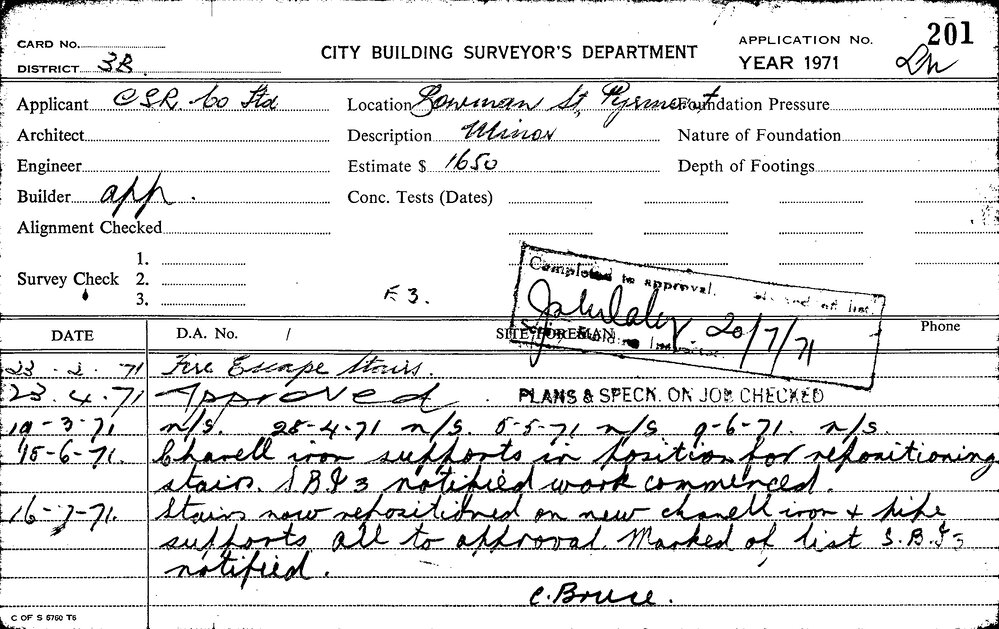 201
CARD No.
CITY BUILDING SURVEYOR'S DEPARTMENT
APPLICATION No.
DISTRICT 3B
YEAR 1971
Applicant CSR Co Ltd
Location Bowman St, Pyrmont
Foundation Pressure
Architect
Description Minor
Nature of Foundation
Engineer
Estimate $ 1650
Depth of Footings
Builder app.
Conc. Tests (Dates)
Alignment Checked
1.
Survey Check 2.
3.
F 3.
Completed to approval.
20/7/71
DATE
D.A. No. /
SITE FOREMAN
Phone
23. 2. 71 Fire Escape Stairs.
23. 4. 71 Approved. PLANS & SPECN. ON JOB CHECKED
19-3-71 n/s. 28-4-71 n/s. 5-5-71 n/s 9-6-71. n/s.
15-6-71. Chanell iron supports in position for repositioning
stairs. S B I 3 notified work commenced.
16-7-71. Stairs now repositioned on new chanell iron & pipe
supports all to approval. Marked of list S.B.I3
notified.
C. Bruce.
C OF S 5760 T6